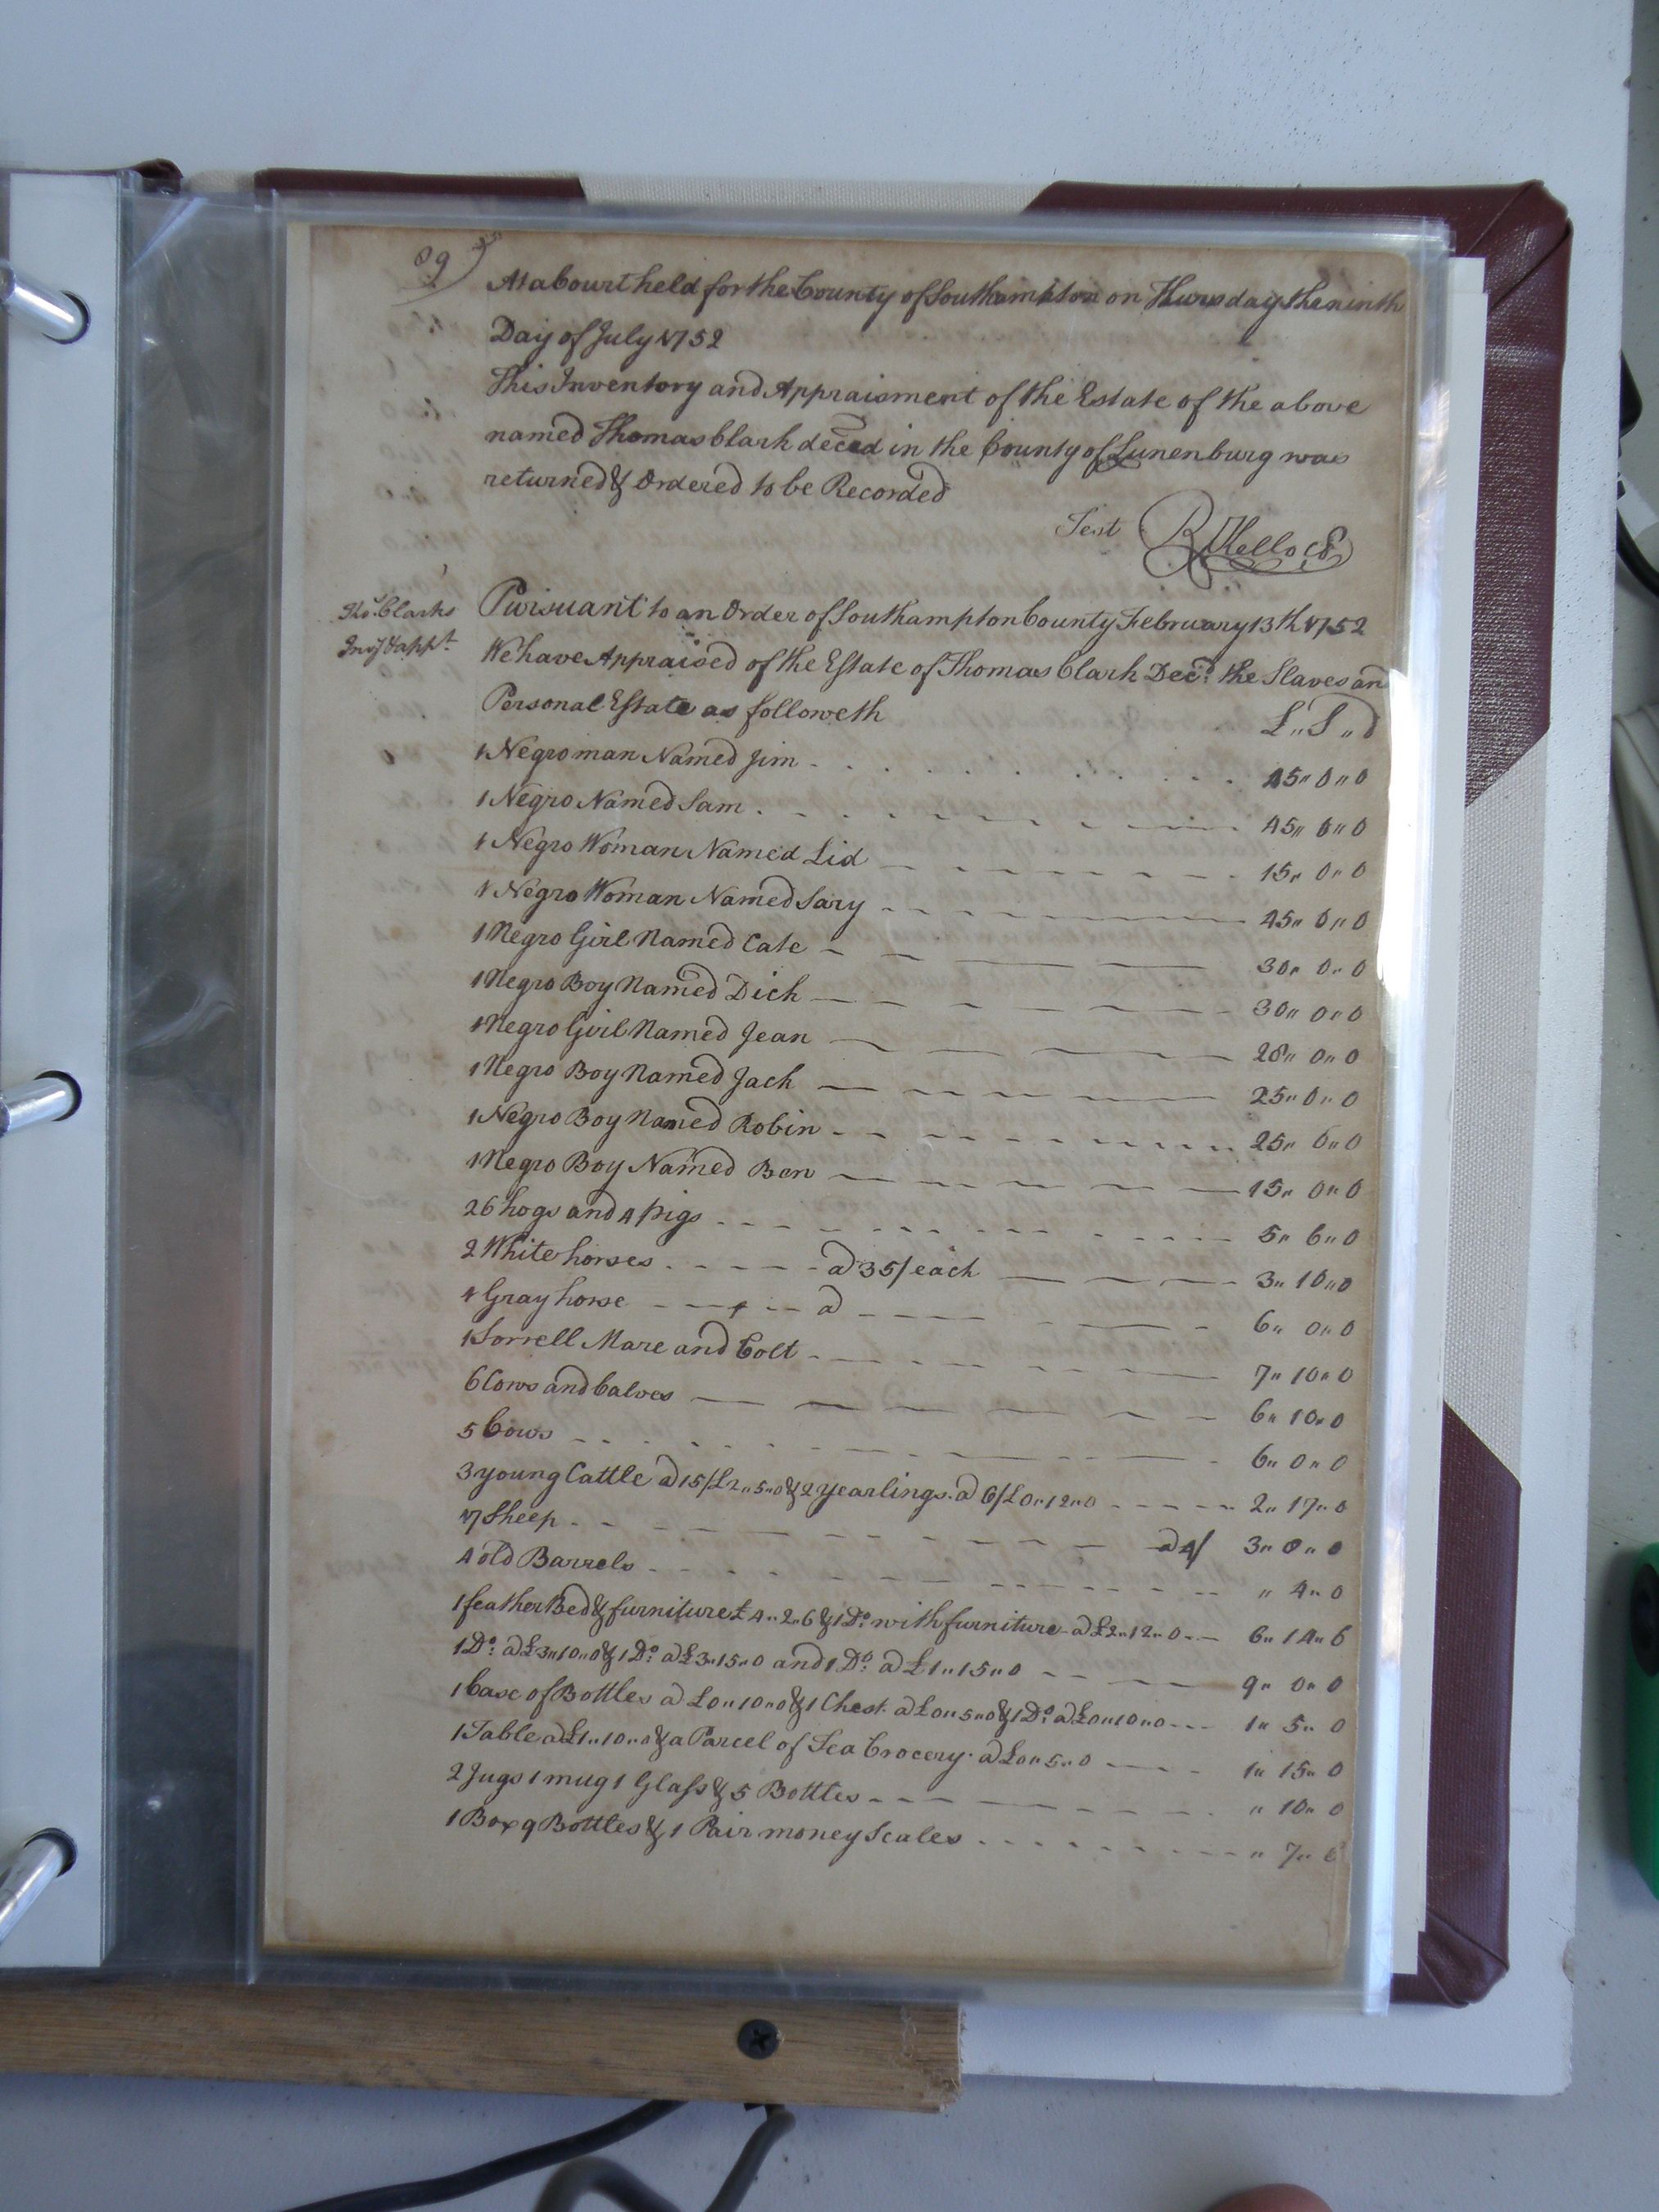 89)
At a Court held for the County of Southampton on Thursday the ninth
Day of July 1752
This Inventory and Appraisment of the Estate of the above
named Thomas Clark deced in the County of Lunenburg was
returned & Ordered to be Recorded
Test R Kello Cl
Tho.s Clarks
Inv.y & app.t
Pursuant to an Order of Southampton County February 13th 1752
We have Appraised of the Estate of Thomas Clark Dec.d the Slaves and
Personal Estate as followeth £ ,, S ,, d
1 Negro man Named Jim 45 ,, 0 ,, 0
1 Negro Named Sam 45 ,, 0 ,, 0
1 Negro Woman Named Lid 15 ,, 0 ,, 0
1 Negro Woman Named Sary 45 ,, 0 ,, 0
1 Negro Girl Named Cate 30 ,, 0 ,, 0
1 Negro Boy Named Dick 30 ,, 0 ,, 0
1 Negro Girl Named Jean 28 ,, 0 ,, 0
1 Negro Boy Named Jack 25 ,, 0 ,, 0
1 Negro Boy Named Robin 25 ,, 0 ,, 0
1 Negro Boy Named Ben 15 ,, 0 ,, 0
26 hogs and 4 pigs 5 ,, 6 ,, 0
2 White horses a 35/ each 3 ,, 10 ,, 0
1 Gray horse a 6 ,, 0 ,, 0
1 Sorrell Mare and Colt 7 ,, 10 ,, 0
6 Cows and Calves 6 ,, 10 ,, 0
5 Cows 6 ,, 0 ,, 0
3 young Cattle a 15/ £2 ,, 5 ,, 0 & 2 yearlings a 6/ £0 ,, 12 ,, 0 2 ,, 17 ,, 0
17 Sheep a 4/ 3 ,, 8 ,, 0
4 old Barrels ,, 4 ,, 0
1 feather Bed & furniture £4 ,, 2 ,, 6 & 1 D.o with furniture a £2 ,, 12 ,, 0 6 ,, 14 ,, 6
1 D.o a £3 ,, 10 ,, 0 & 1 D.o a £3 ,, 15 ,, 0 and 1 D.o a £1 ,, 15 ,, 0 9 ,, 0 ,, 0
1 Case of Bottles a £0 ,, 10 ,, 0 & 1 Chest a £0 ,, 5 ,, 0 & 1 D.o a £0 ,, 10 ,, 0 1 ,, 5 ,, 0
1 Table a £1 ,, 10 ,, 0 & a Parcel of Tea Crocery a £0 ,, 5 ,, 0 1 ,, 15 ,, 0
2 Jugs 1 mug 1 Glass & 5 Bottles ,, 10 ,, 0
1 Box 9 Bottles & 1 Pair money Scales ,, 7 ,, 6